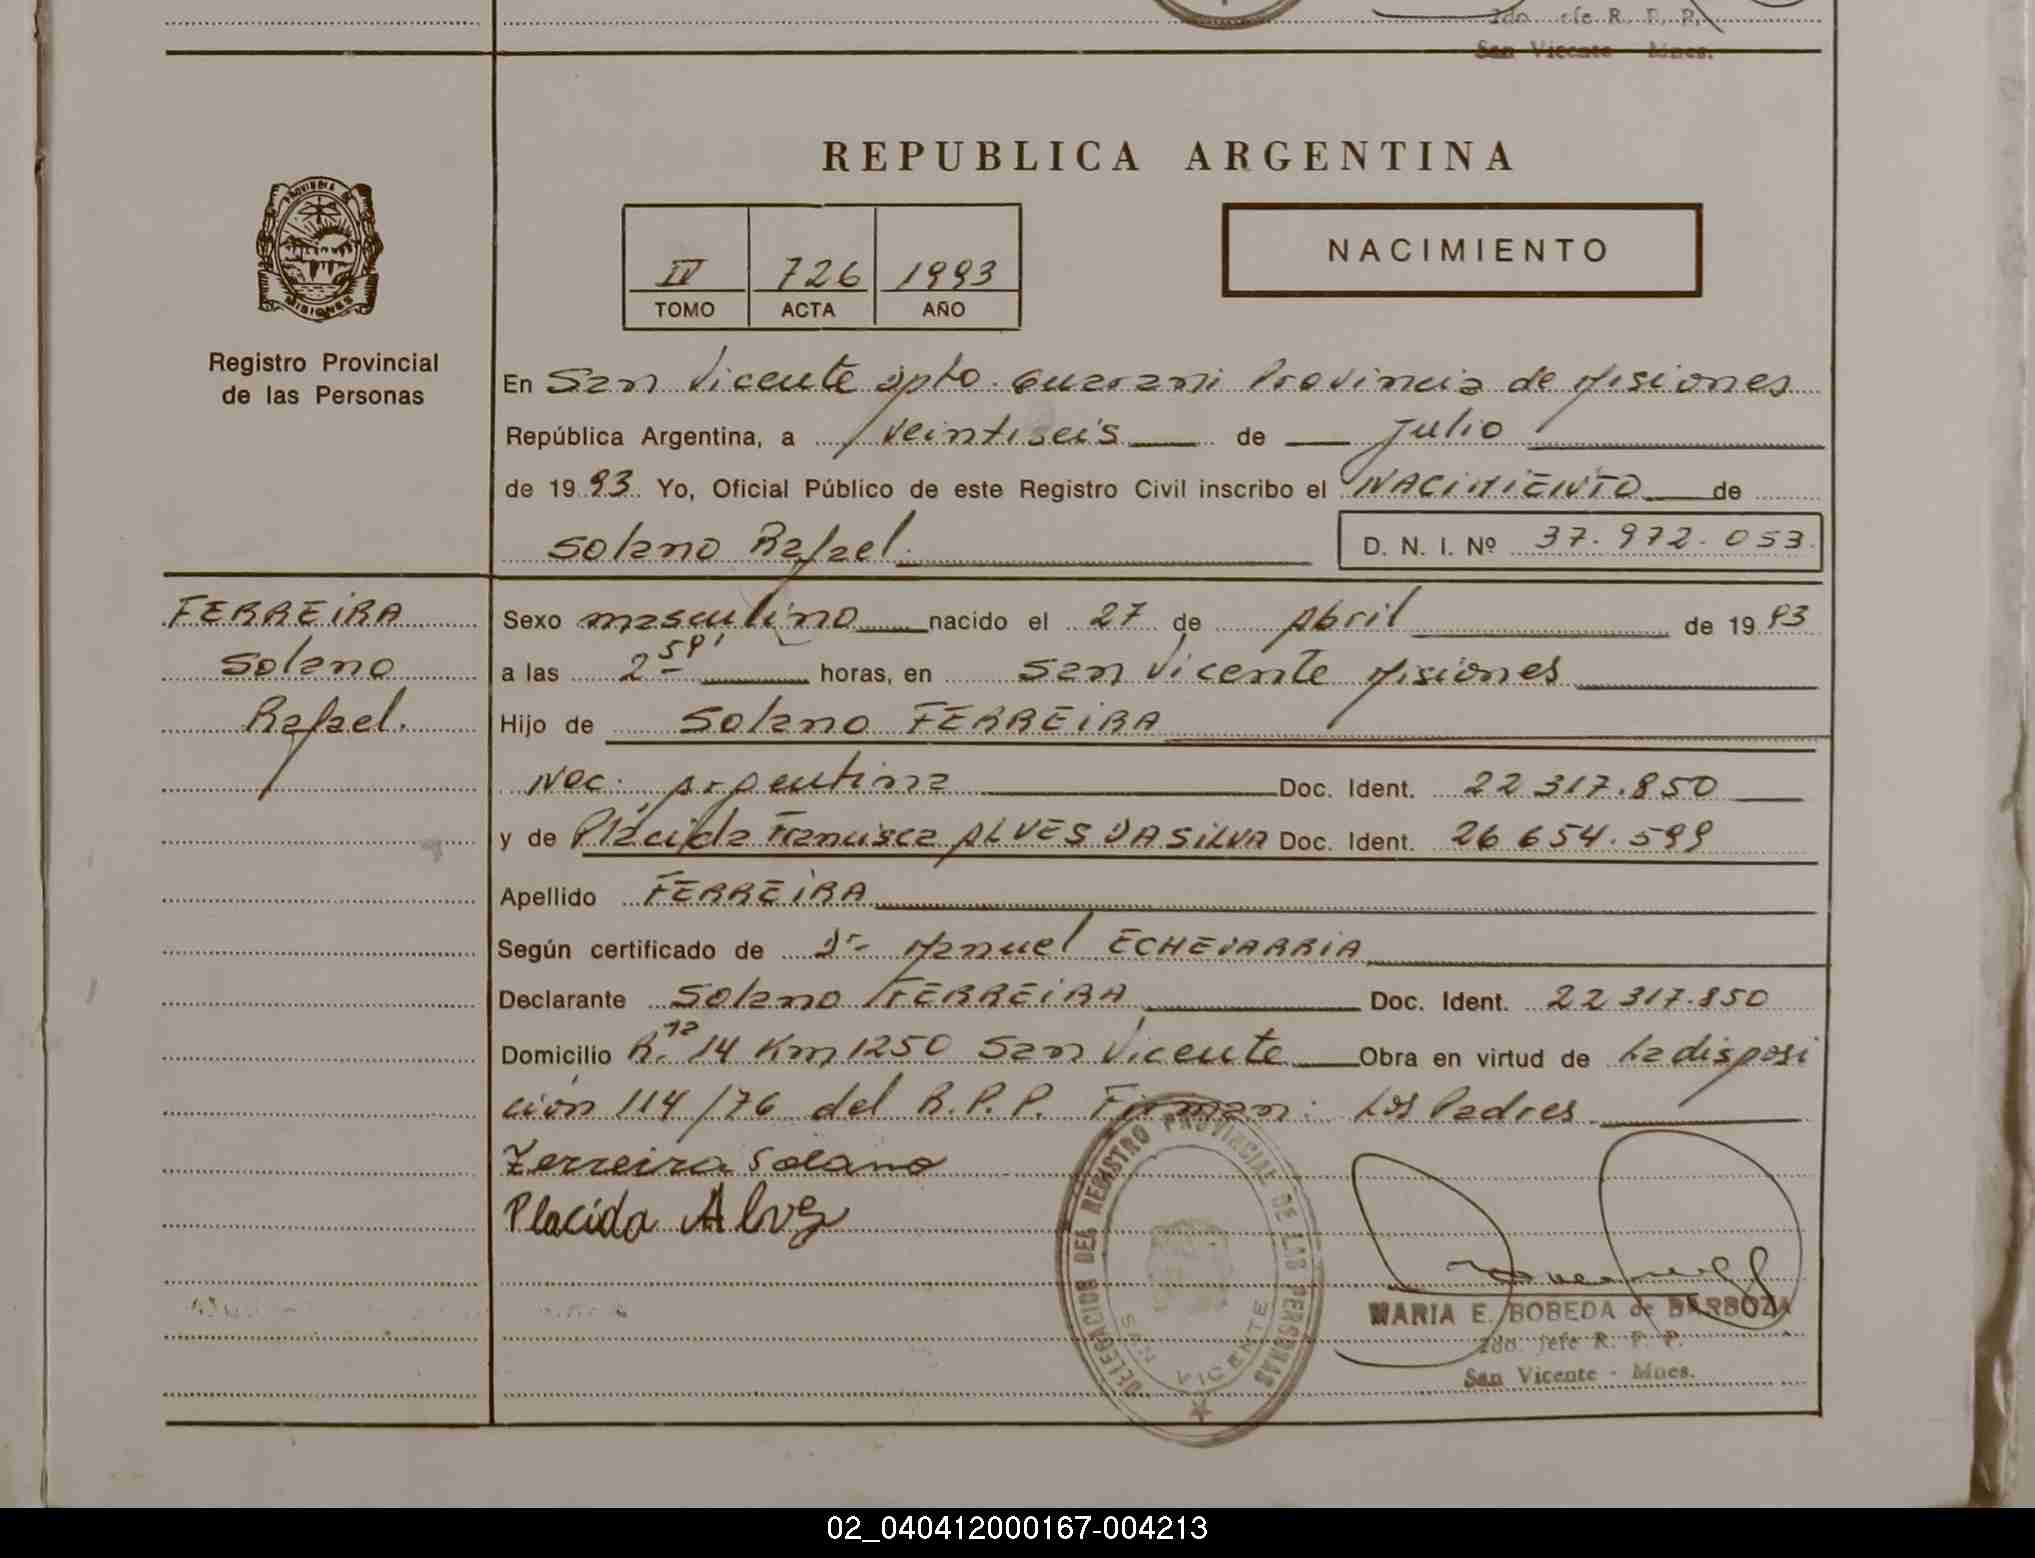 2do Jefe R. P. P.
San Vicente - Mnes.
REPUBLICA ARGENTINA
PROVINCIA DE
MISIONES
IV 726 1993
TOMO ACTA AÑO
NACIMIENTO
Registro Provincial
de las Personas
En San Vicente Dpto. Guarani Provincia de Misiones
República Argentina, a veintiseis de Julio
de 1993. Yo, Oficial Público de este Registro Civil inscribo el NACIMIENTO de
Solano Rafael. D. N. I. Nº 37.972.053.
FERREIRA
Solano
Rafael.
Sexo masculino nacido el 27 de Abril de 1993
a las 2 59' horas, en San Vicente Misiones
Hijo de Solano FERREIRA
Nac. Argentina Doc. Ident. 22 317.850
y de Plácida Francisca ALVES DA SILVA Doc. Ident. 26 654.599
Apellido FERREIRA
Según certificado de Dr- Manuel ECHEVARRIA
Declarante Solano FERREIRA Doc. Ident. 22 317.850
Domicilio R. 14 Km 1250 San Vicente Obra en virtud de La disposi
ción 114/76 del R.P.P. Firman: Los Padres
Ferreira Solano
Placida Alves
DELEGACION DEL REGISTRO PROVINCIAL DE LAS PERSONAS
SAN VICENTE
MARIA E. BOBEDA de BARBOZA
2do. Jefe R. P. P.
San Vicente - Mnes.
02_040412000167-004213